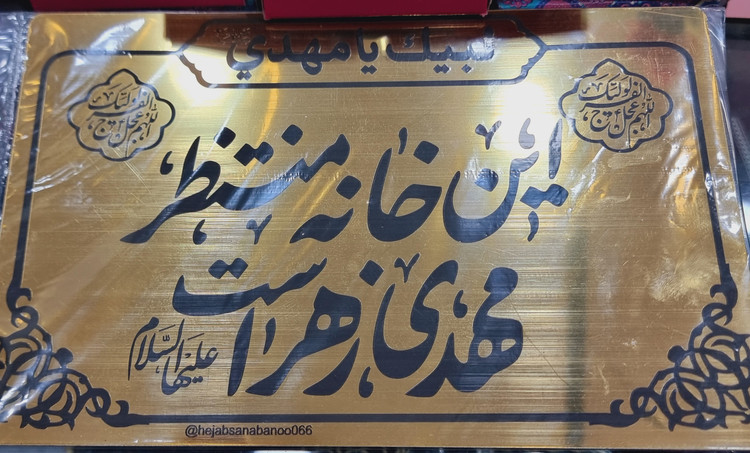 لبيك يا مهدي
اللهم عجل لوليك الفرج
اللهم عجل لوليك الفرج
این خانه منتظر
مهدی زهراست
علیها السلام
@hejabsanabanoo066